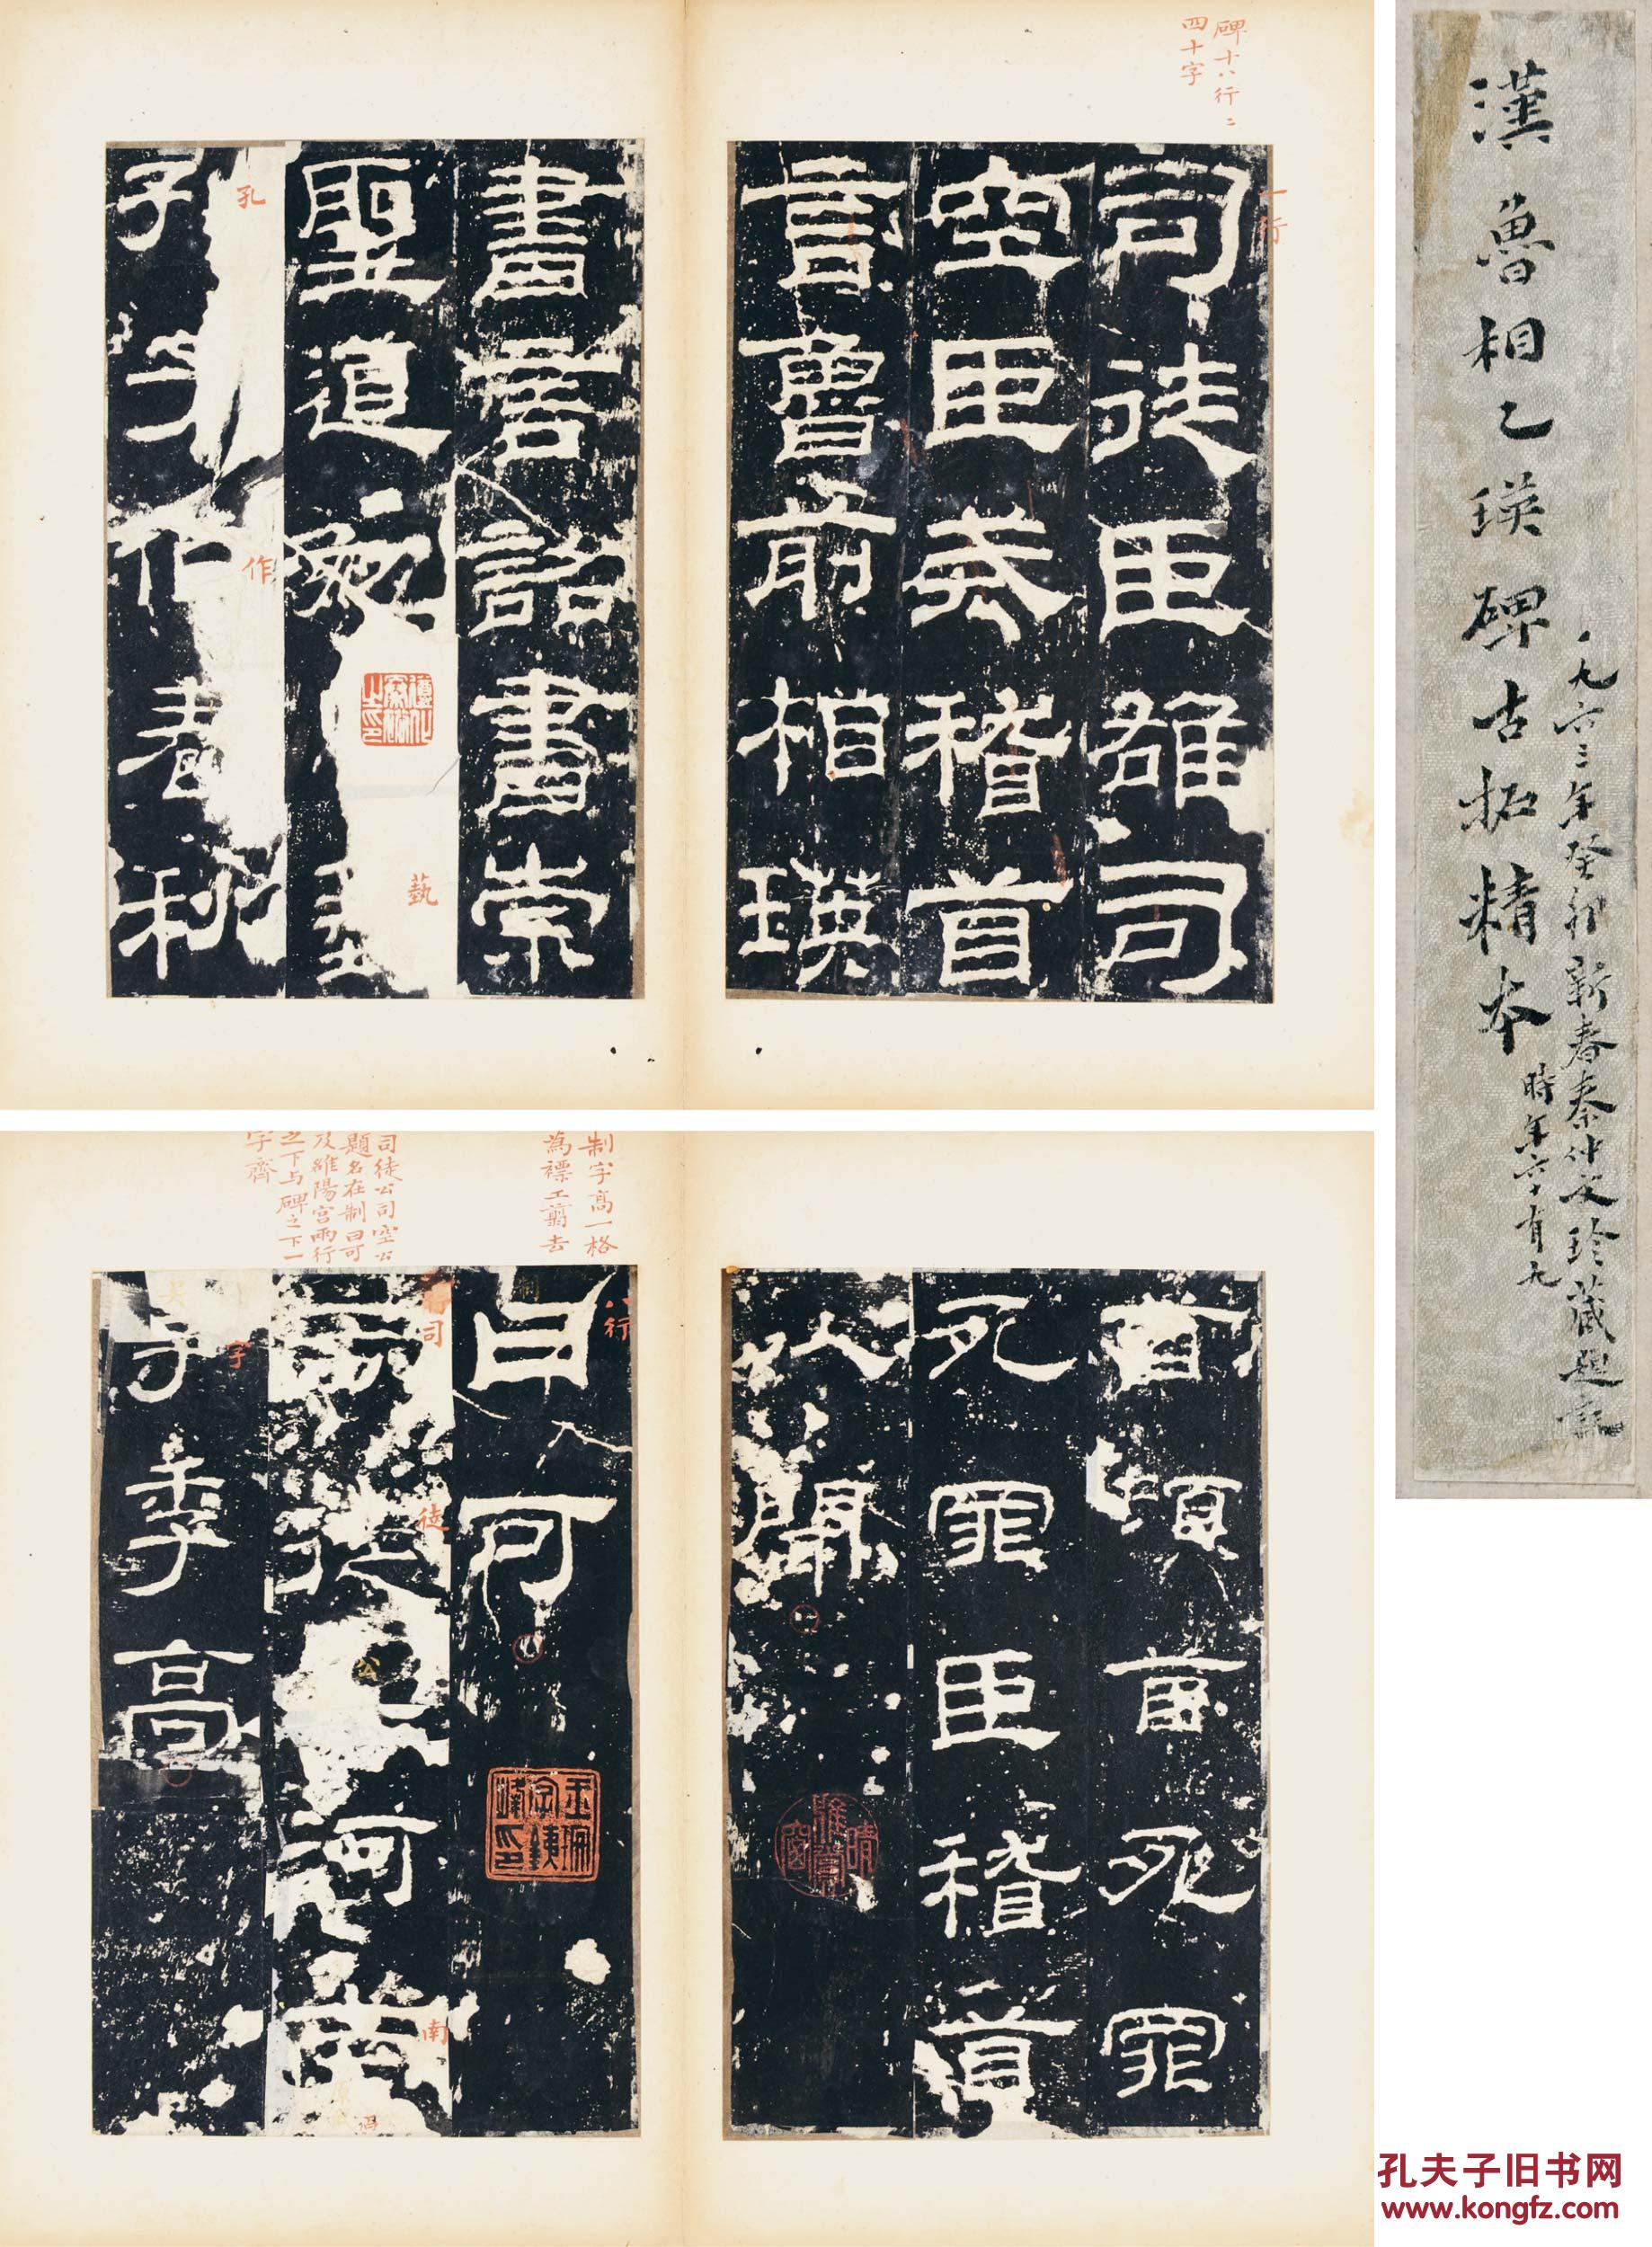 碑十八行二
四十字
一行
司徒臣雄司
空臣戒稽首
言魯前相瑛
書言詔書崇
聖道
藝
孔子作春秋
孔
作
制字高一格
為褾工翦去
司徒公司空公
題名在制曰可
及雒陽宮兩行
之下与碑之下一
字齊
首頓首死罪
死罪臣稽首
以聞
八行
曰可
司徒公河南
司
徒
公
南
字季高
字
漢魯相乙瑛碑古拓精本
一九六三年癸卯新春秦仲文珍藏題記
時年六十有九
孔夫子旧书网
www.kongfz.com